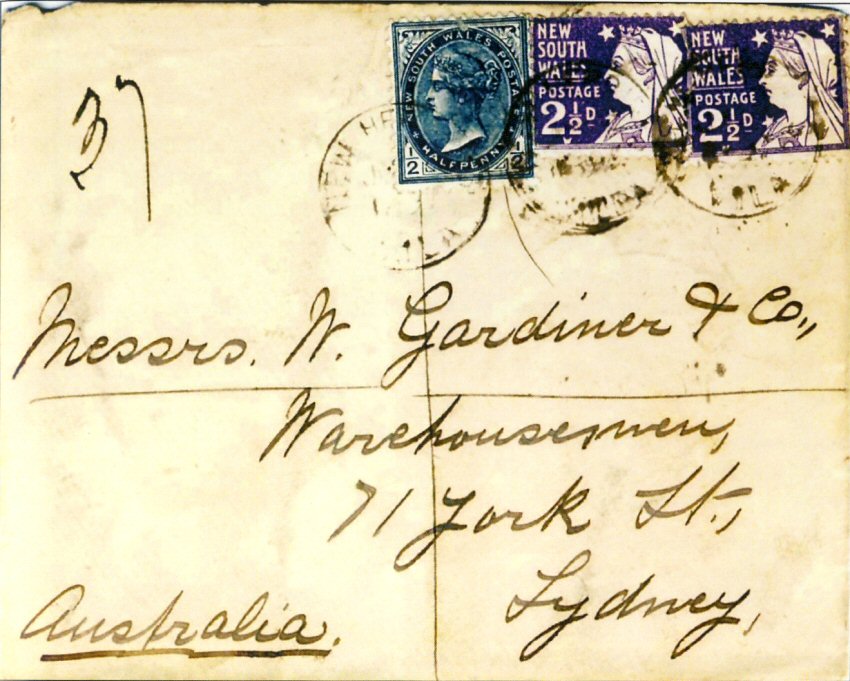 37
NEW SOUTH WALES POSTAGE
HALFPENNY
1/2 1/2
NEW
SOUTH
WALES
POSTAGE
2½D
NEW
SOUTH
WALES
POSTAGE
2½D
NEW HE
VILA
Messrs. W. Gardiner & Co.,
Warehousesmen,
71 York St.,
Sydney,
Australia.